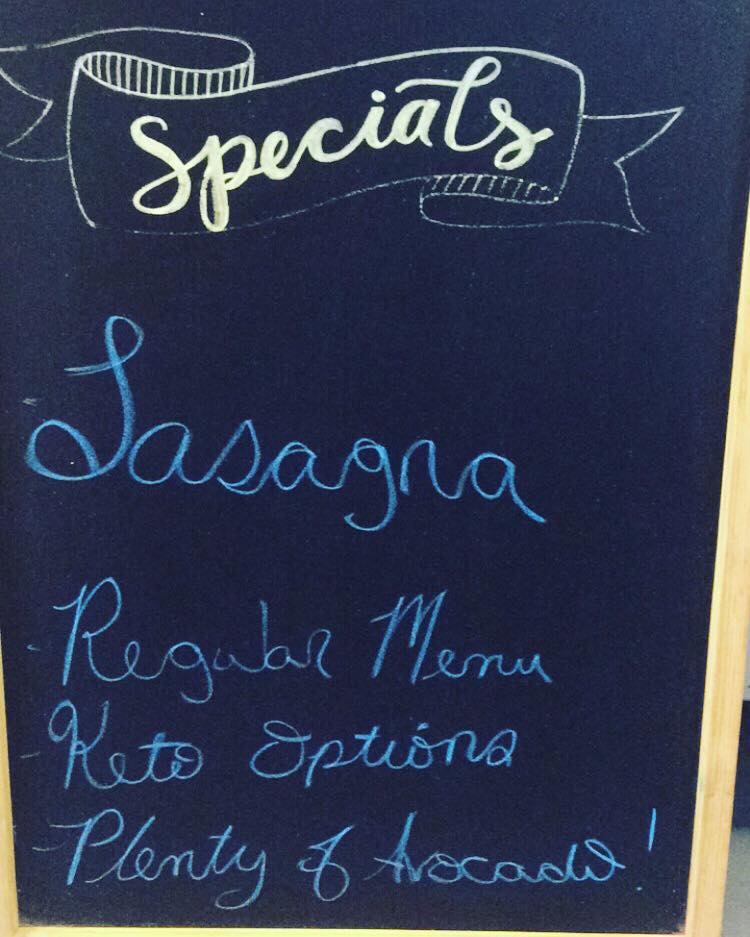 Specials
- Lasagna
- Regular Menu
- Keto Options
- Plenty of Avocado!